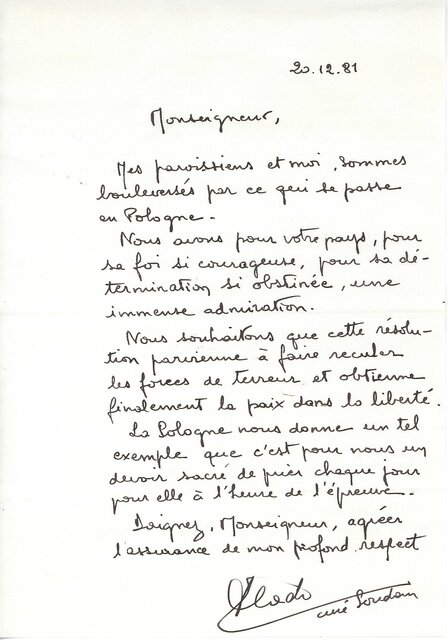 20.12.81
Monseigneur,
Mes paroissiens et moi, sommes
bouleversés par ce qui se passe
en Pologne.
Nous avons pour votre pays, pour
sa foi si courageuse, pour sa dé-
termination si obstinée, une
immense admiration.
Nous souhaitons que cette résolu-
tion parvienne à faire reculer
les forces de terreur et obtienne
finalement la paix dans la liberté.
La Pologne nous donne un tel
exemple que c'est pour nous un
devoir sacré de prier chaque jour
pour elle à l'heure de l'épreuve.
Daignez, Monseigneur, agréer
l'assurance de mon profond respect
curé